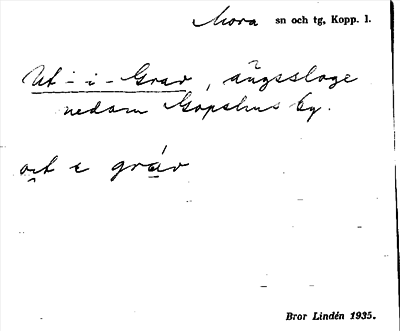 Mora sn och tg, Kopp. l.
Ut-i-Grav, ängssloge
nedom Gopshus by.
ut e gráv
Bror Lindén 1935.